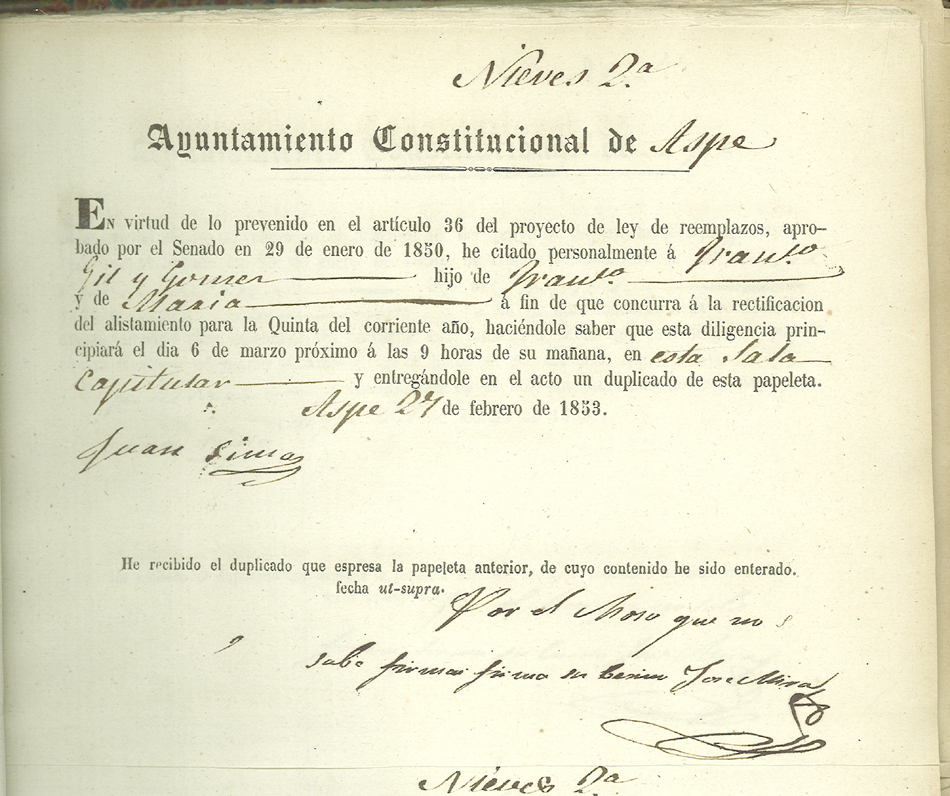 Nieves 2.ª
Ayuntamiento Constitucional de Aspe
EN virtud de lo prevenido en el artículo 36 del proyecto de ley de reemplazos, apro-
bado por el Senado en 29 de enero de 1850, he citado personalmente á Fran.co
Gil y Gomez hijo de Fran.co
y de Maria á fin de que concurra á la rectificacion
del alistamiento para la Quinta del corriente año, haciéndole saber que esta diligencia prin-
cipiará el dia 6 de marzo próximo á las 9 horas de su mañana, en esta Sala
Capitular y entregándole en el acto un duplicado de esta papeleta.
Aspe 27 de febrero de 1853.
Juan
He recibido el duplicado que espresa la papeleta anterior, de cuyo contenido he sido enterado.
fecha ut-supra.
Por el Moso que no
sabe firmar firma su Jose Mira
Nieves 2.ª